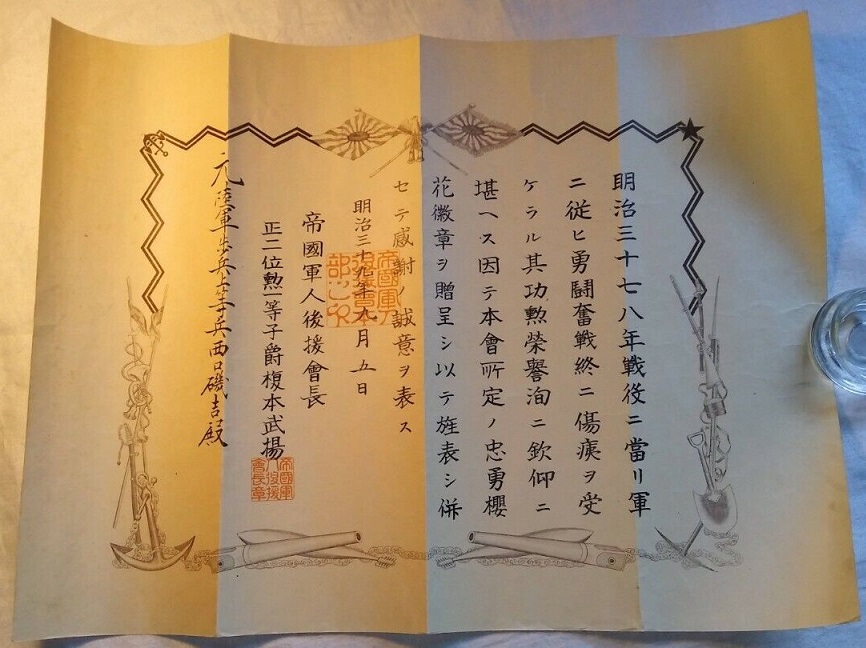 明治三十七八年戦役ニ當リ軍
ニ從ヒ勇鬪奮戦終ニ傷痍ヲ受
ケラル其功勲榮譽洵ニ欽仰ニ
堪ヘス因テ本會所定ノ忠勇櫻
花徽章ヲ贈呈シ以テ旌表シ併
セテ感謝ノ誠意ヲ表ス
明治三十九年九月五日
帝國軍人後援會長
正二位勲一等子爵榎本武揚
元陸軍歩兵上等兵西口磯吉殿
帝國軍
人後援
會長章